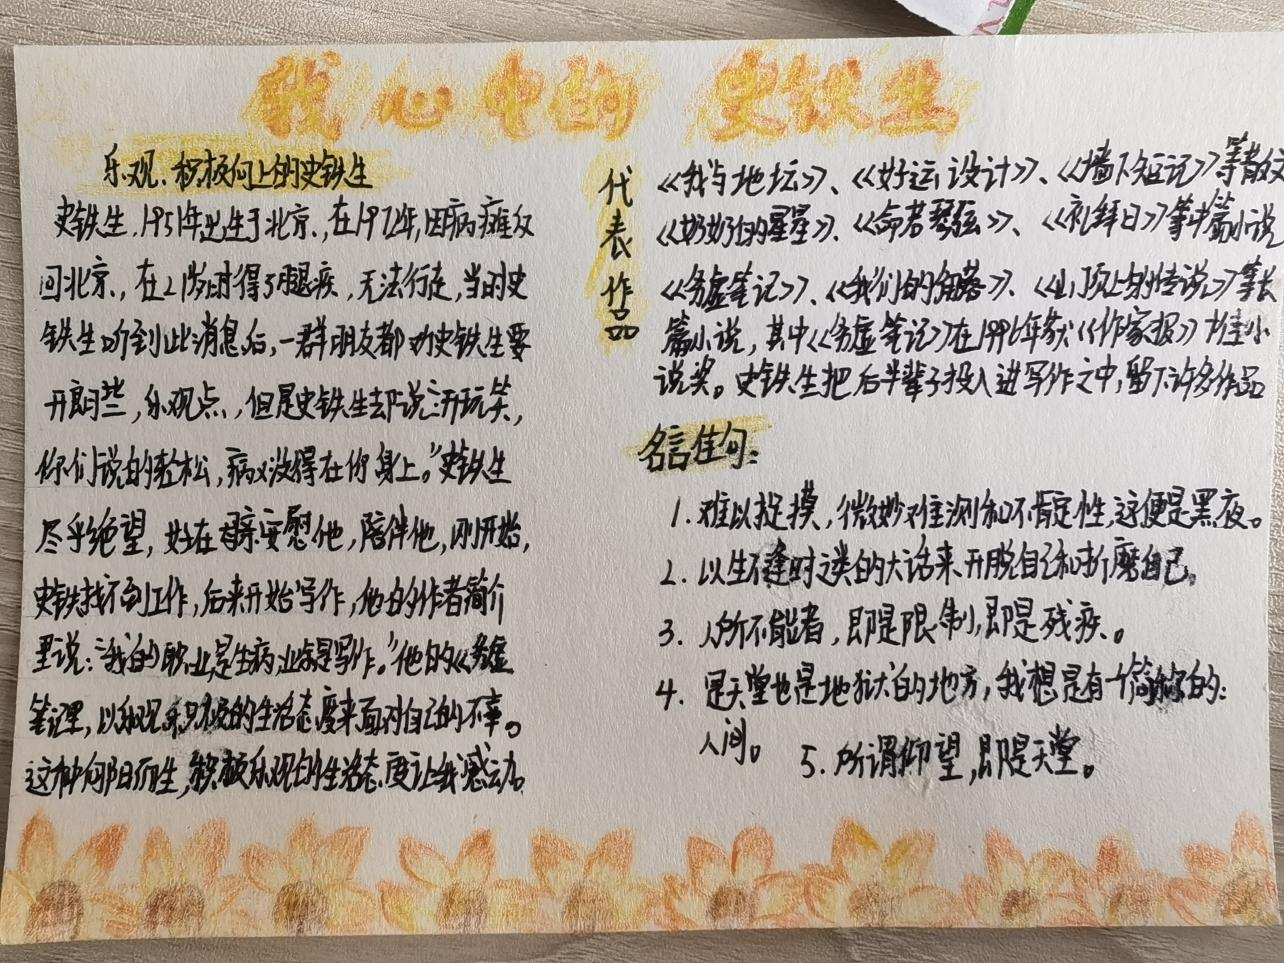 我心中的史铁生
乐观、积极向上的史铁生
史铁生,1951年出生于北京,在1972年,因病瘫痪
回北京,在21岁时得了腿疾,无法行走,当时史
铁生听到此消息后,一群朋友都劝史铁生要
开朗些,乐观点,但是史铁生却说:"开玩笑,
你们说的轻松,病又没得在你身上。"史铁生
尽乎绝望,好在母亲安慰他,陪伴他,刚开始,
史铁找不到工作,后来开始写作,他的作者简介
里说:"我的职业是生病,业余是写作。"他的《务虚
笔记里,以乐观积极的生活态度来面对自己的不幸。
这种向阳而生,积极乐观的生活态度让我感动。
代表作品
《我与地坛》、《好运设计》、《墙下短记》等散文
《奶奶的星星》、《命若琴弦》、《礼拜日》等中篇小说
《务虚笔记》、《我们的角落》、《山顶上的传说》等长
篇小说,其中《务虚笔记》在1996年获《作家报》十佳小
说奖。史铁生把后半辈子投入进写作之中,留下许多作品
名言佳句:
1. 难以捉摸,微妙难测和不肯定性,这便是黑夜。
2. 以生不逢时之类的大话来开脱自己和折磨自己。
3. 人所不能者,即是限制,即是残疾。
4. 是天堂也是地狱的地方,我想是有一个简称的:
人间。
5. 所谓仰望,即是天堂。